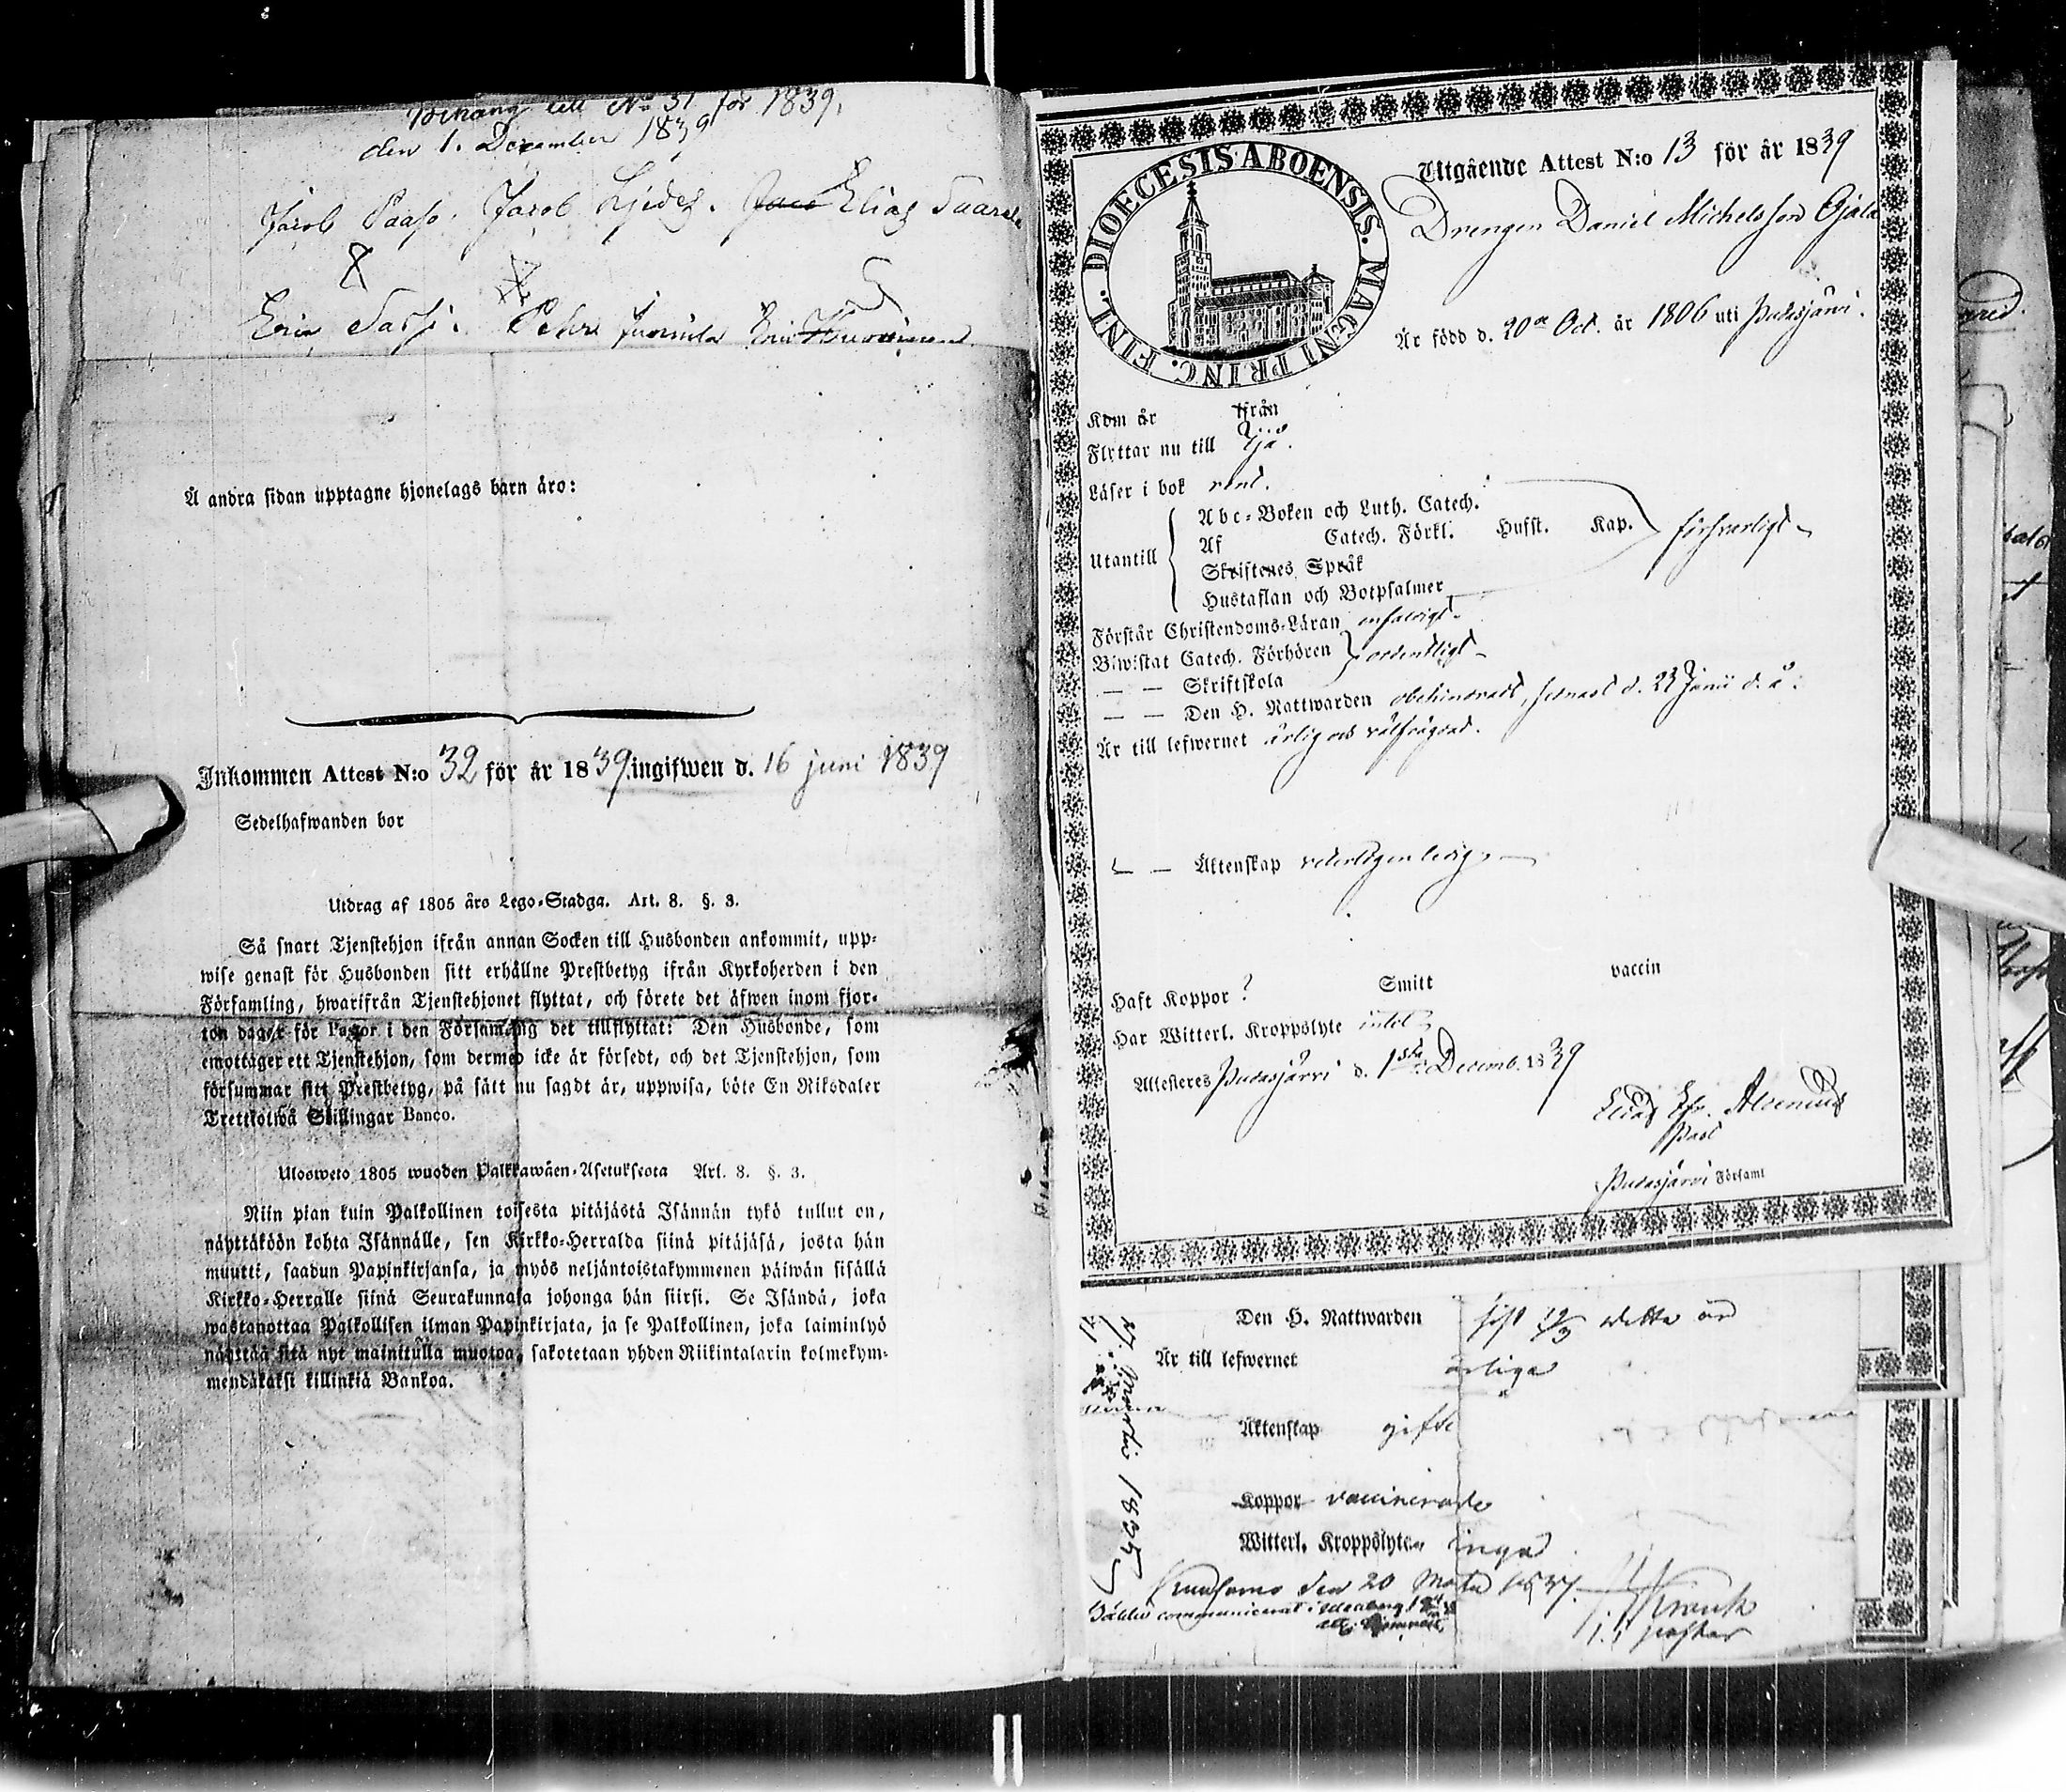 Bihang till No 31 för 1839.
den 1. December 1839
Jacob Paaso. Jacob Hjedes. Elias
Eric Sassi. Petter Eric
Å andra sidan upptagne hjonelags barn äro:
Inkommen Attest N:o 32 för år 1839 ingifwen d. 16 juni 1839
Sedelhafwanden bor
Utdrag af 1805 års Lego-Stadga. Art. 8. §. 3.
Så snart Tjenstehjon ifrån annan Socken till Husbonden ankommit, upp-
wise genast för Husbonden sitt erhållne Prestbetyg ifrån Kyrkoherden i den
Församling, hwarifrån Tjenstehjonet flyttat, och förete det äfwen inom fjor-
ton dagar för Pastor i den Församling det tillflyttat: Den Husbonde, som
emottager ett Tjenstehjon, som dermed icke är försedt, och det Tjenstehjon, som
försummar sitt Prestbetyg, på sätt nu sagdt är, uppwisa, böte En Riksdaler
Trettiotwå Skillingar Banco.
Ulosweto 1805 wuoden Palkkawäen-Asetuksesta Art. 8. §. 3.
Niin pian kuin Palkollinen toisesta pitäjästä Isännän tykö tullut on,
näyttäköön kohta Isännälle, sen Kirkko-Herralda siinä pitäjäsä, josta hän
muutti, saadun Papinkirjansa, ja myös neljäntoistakymmenen päiwän sisällä
Kirkko-Herralle siinä Seurakunnasa johonga hän siirsi. Se Isändä, joka
wastanottaa Palkollisen ilman Papinkirjata, ja se Palkollinen, joka laiminlyö
näyttää sitä nyt mainitulla muotoa, sakotetaan yhden Riikintalarin kolmekym-
mendäkaksi killinkiä Bankoa.
DIOECESIS ABOENSIS. MAGNI PRINC. FINL.
Utgående Attest N:o 13 för år 1839
Drengen Daniel Michelsson
Är född d. 20de Oct. år 1806 uti Pudasjärvi.
Kom år ifrån
Flyttar nu till Ijo.
Läser i bok rent.
Utantill
Abc-Boken och Luth. Catech.
Af Catech. Förkl. Husst. Kap. försvarligt
Skriftenes Språk
Hustaflan och Botpsalmer
Förstår Christendoms-Läran enfaldigt
Biwistat Catech. Förhören ordentligt
— — Skriftskola
— — Den H. Nattwarden obehindradt, senast d. 23 Junii d. å.
Är till lefwernet ärlig och välfrägdad.
— — Äktenskap veterligen ledig
Haft Koppor? Smitt vaccin
Har Witterl. Kroppslyte intet
Attesteras Pudasjärvi d. 1sta Decemb. 1839
Elias Alcenius
Past
Pudasjärvi Församl
Den H. Nattwarden sist 12/3 detta år
Är till lefwernet ärliga
Äktenskap gifte
Koppor vaccinerade
Witterl. Kroppslyten inga
Kuusamo den 20 Martii 1837.
communicerat i Uleåborg